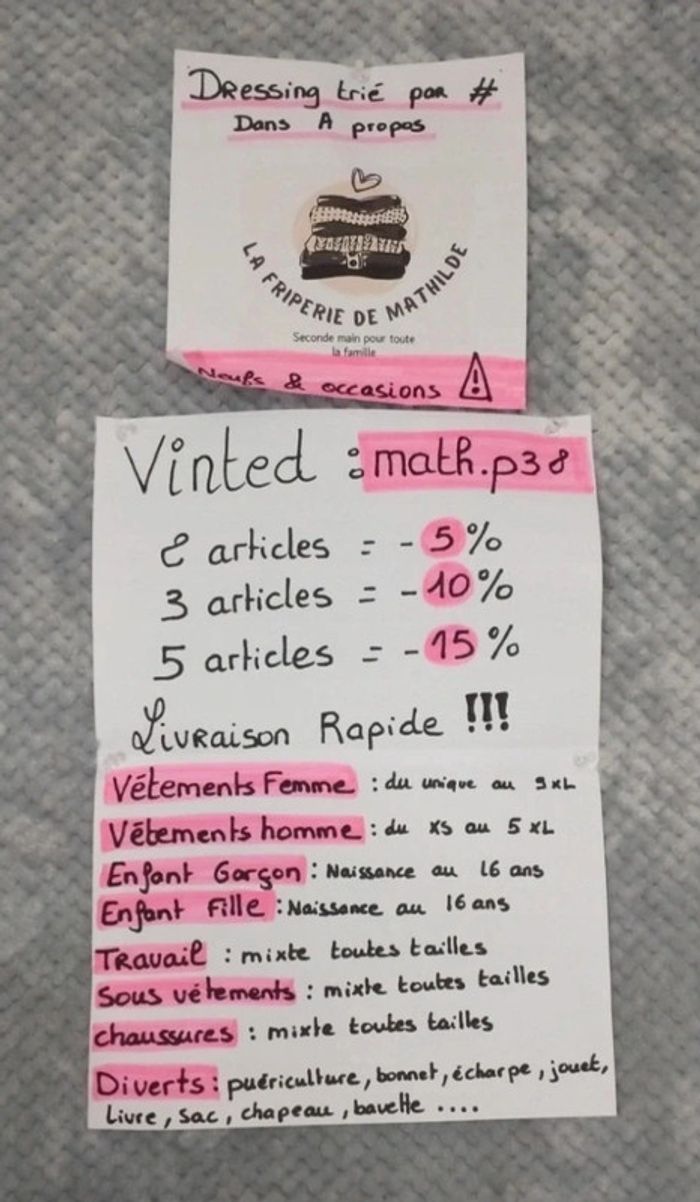 Dressing trié par #
Dans A propos
LA FRIPERIE DE MATHILDE
Seconde main pour toute
la famille
Neufs & occasions ⚠
Vinted : math.p38
2 articles = - 5%
3 articles = - 10%
5 articles = - 15%
Livraison Rapide !!!
Vétements Femme : du unique au 5xL
Vétements homme : du xs au 5 xL
Enfant Garçon : Naissance au 16 ans
Enfant Fille : Naissance au 16 ans
Travail : mixte toutes tailles
Sous vétements : mixte toutes tailles
chaussures : mixte toutes tailles
Diverts : puériculture, bonnet, écharpe, jouet,
Livre, sac, chapeau, bavette ....